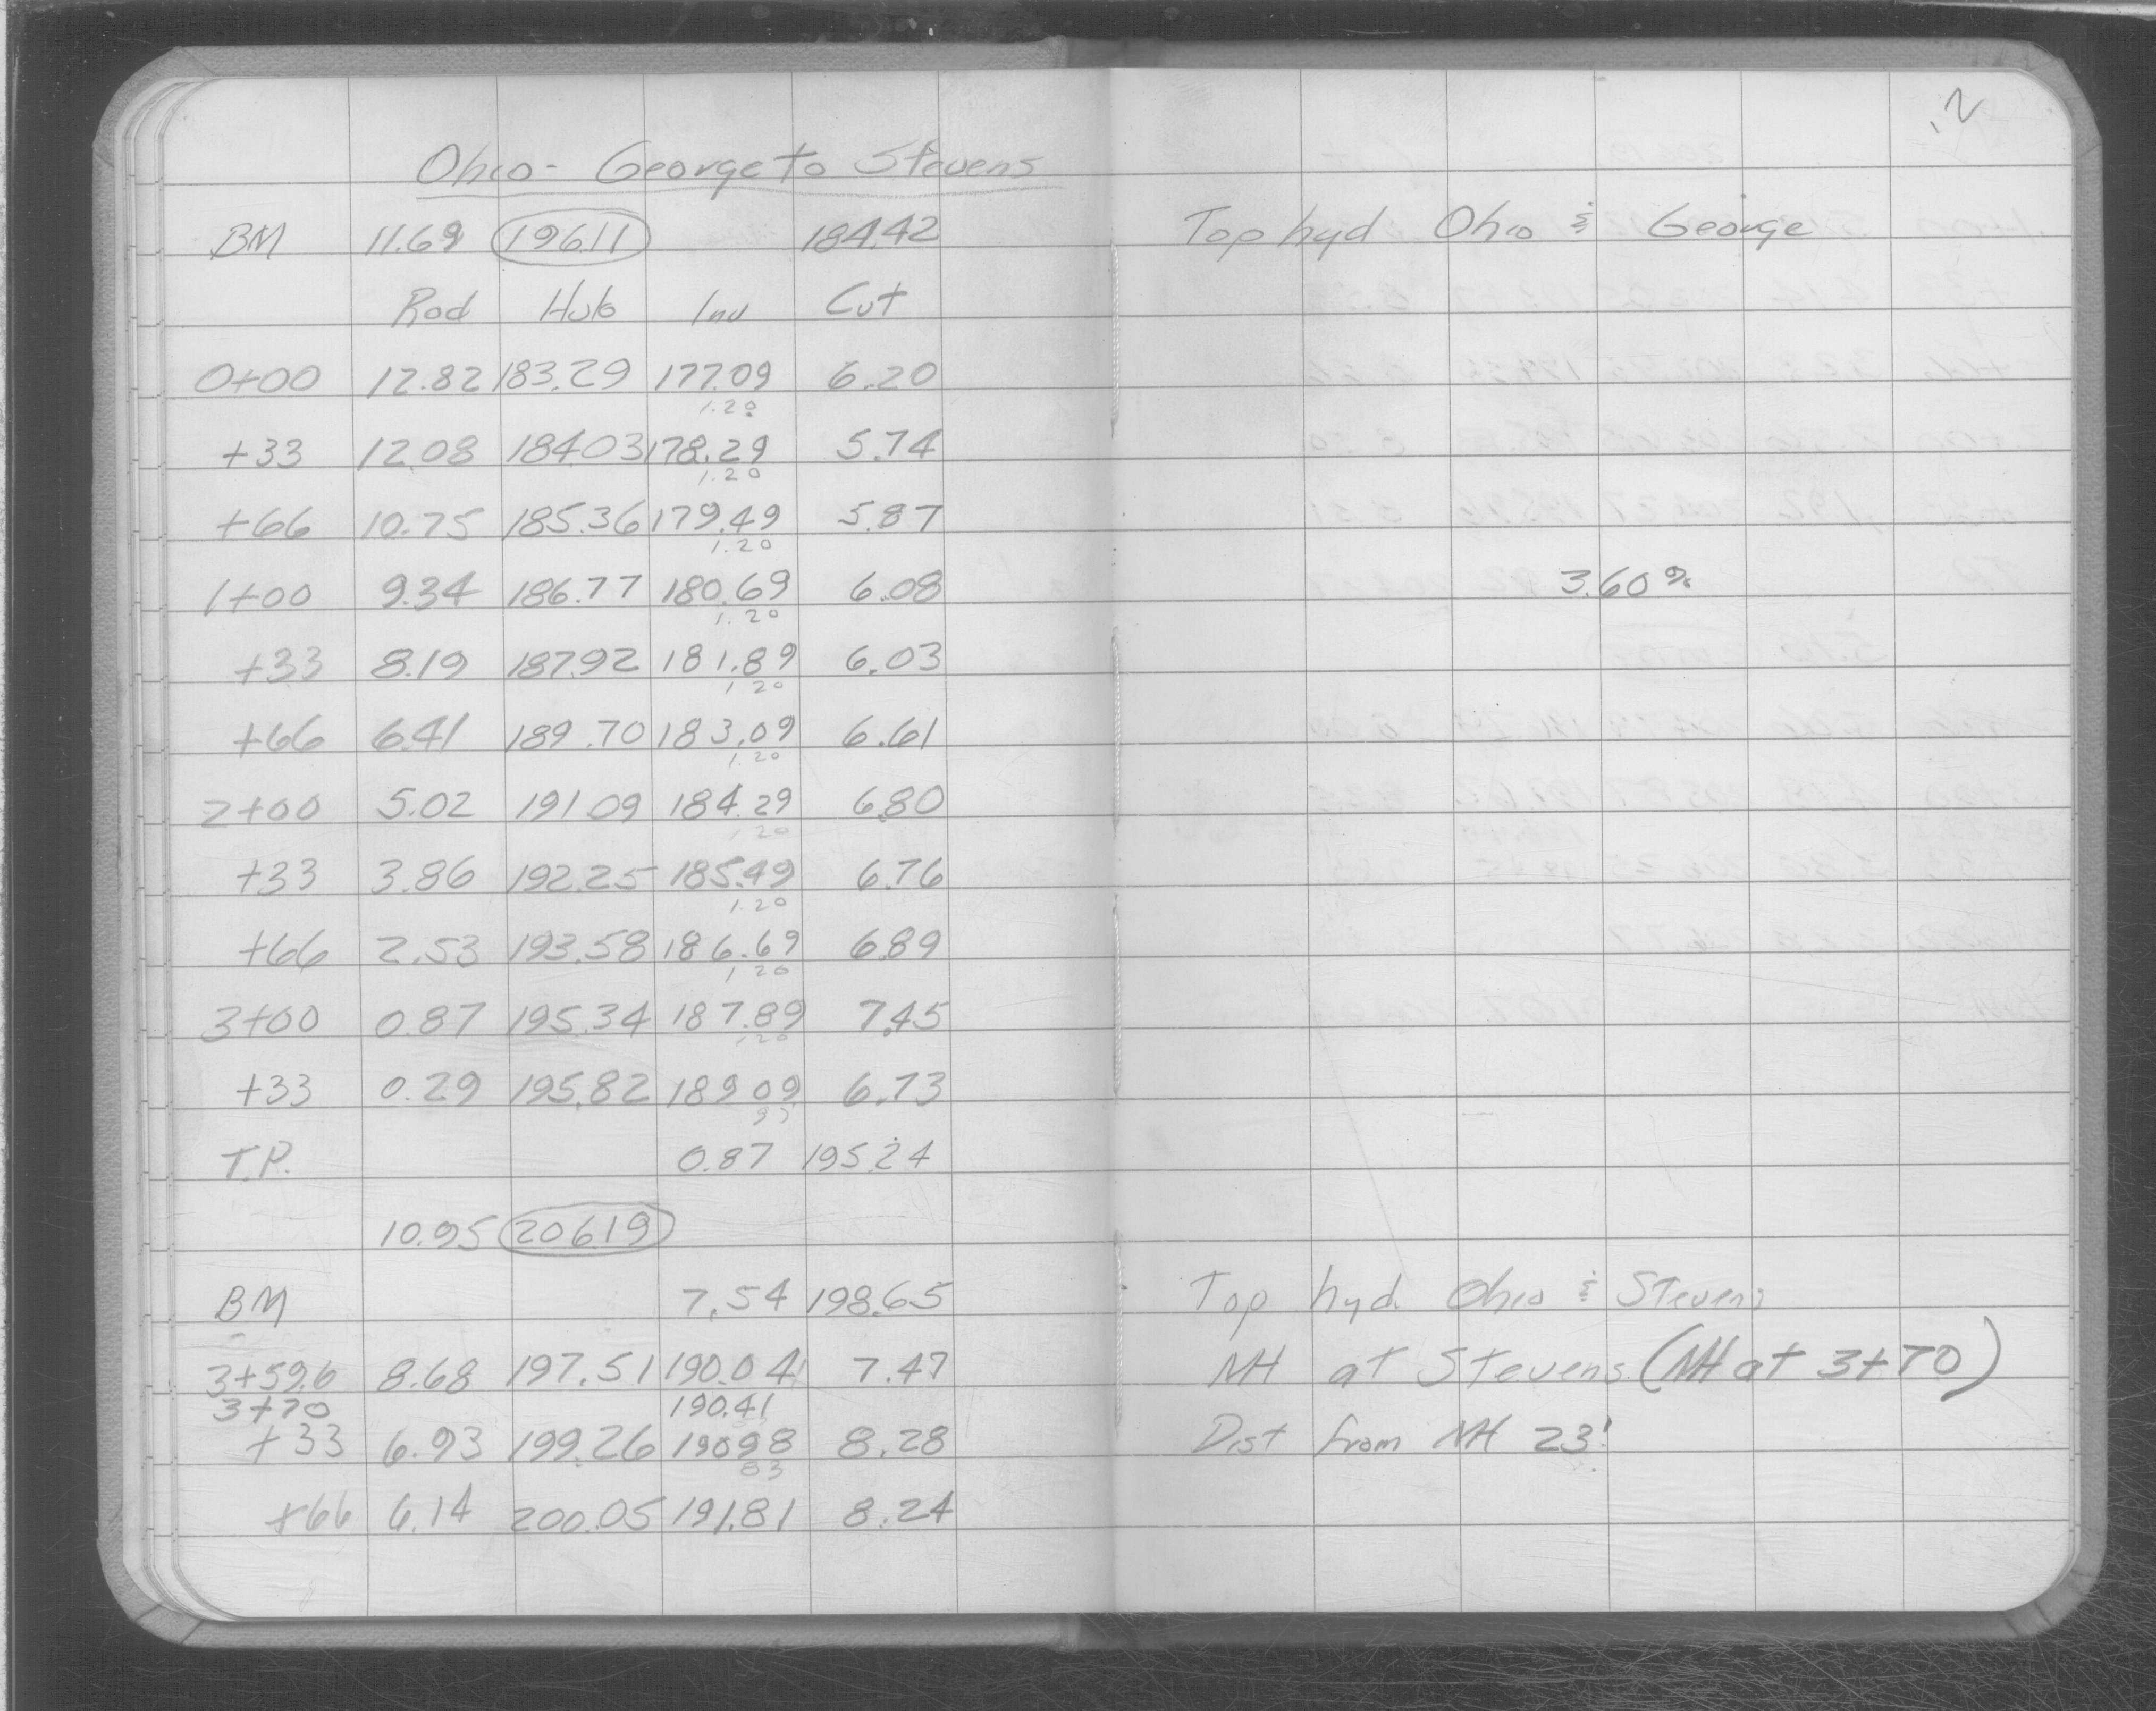 .2
Ohio - George to Stevens
BM 11.69 196.11 184.42 Top hyd Ohio & George
Rod Hub Inv Cut
0+00 12.82 183.29 177.09 6.20
1.20
+33 12.08 184.03 178.29 5.74
1.20
+66 10.75 185.36 179.49 5.87
1.20
1+00 9.34 186.77 180.69 6.08 3.60%
1.20
+33 8.19 187.92 181.89 6.03
1.20
+66 6.41 189.70 183.09 6.61
1.20
2+00 5.02 191.09 184.29 6.80
1.20
+33 3.86 192.25 185.49 6.76
1.20
+66 2.53 193.58 186.69 6.89
1.20
3+00 0.87 195.34 187.89 7.45
1.20
+33 0.29 195.82 189.09 6.73
95
T.P. 0.87 195.24
10.95 206.19
BM 7.54 198.65 Top hyd. Ohio & Stevens
3+59.6 8.68 197.51 190.04 7.47 MH at Stevens (MH at 3+70)
3+70 190.41
+33 6.93 199.26 190.98 8.28 Dist from MH 23'
83
+66 6.14 200.05 191.81 8.24